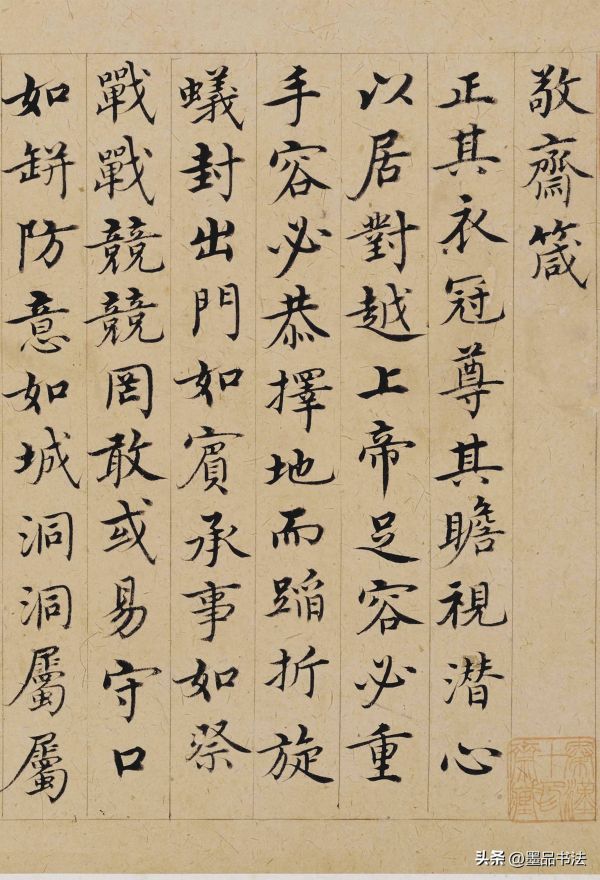 敬齋箴
正其衣冠尊其瞻視潜心
以居對越上帝足容必重
手容必恭擇地而蹈折旋
蟻封出門如賓承事如祭
戰戰競競罔敢或易守口
如缾防意如城洞洞屬屬
头条 @墨品书法